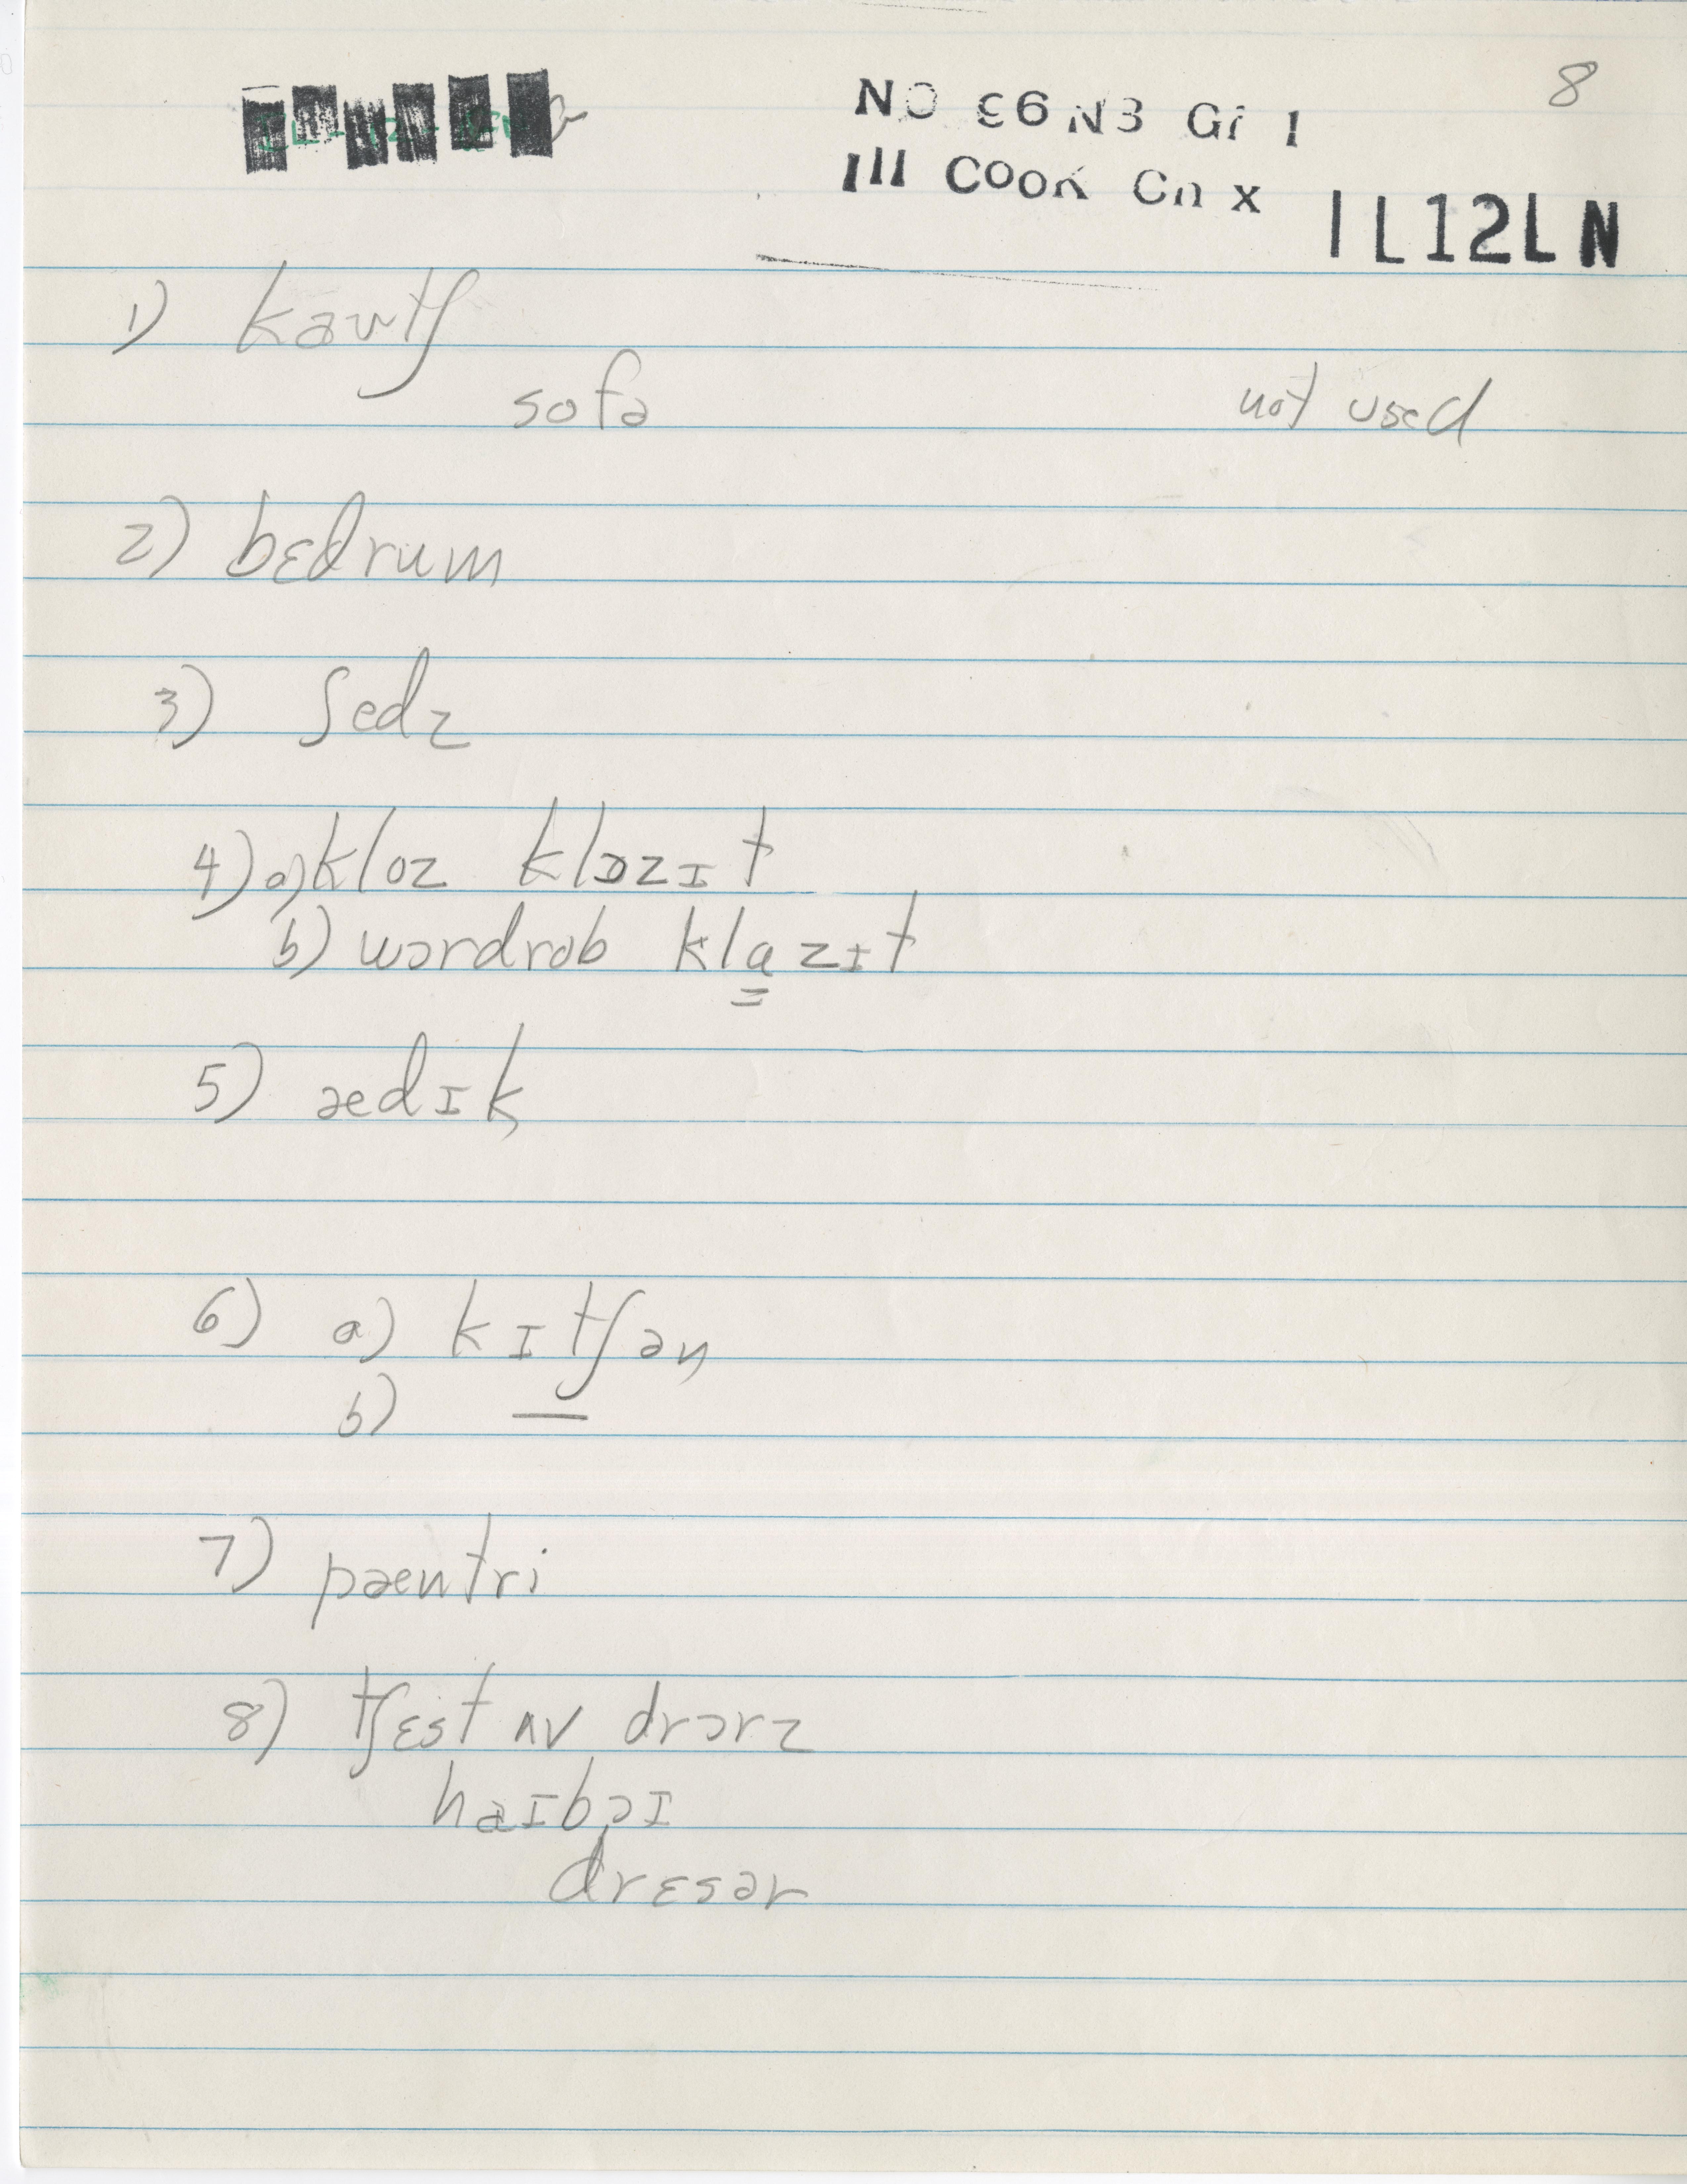 8
NO 96 N3 Gr 1
Ill Cook Cn x
IL12LN
1) kaʊtʃ
sofə not used
2) bɛdrum
3) ʃedz
4) a) kloz klɔzɪt
b) wɔrdrob klazɪt
5) ædɪk
6) a) kɪtʃən
b) —
7) pæntri
8) tʃɛst ʌv drɔrz
haɪbɔɪ
drɛsər